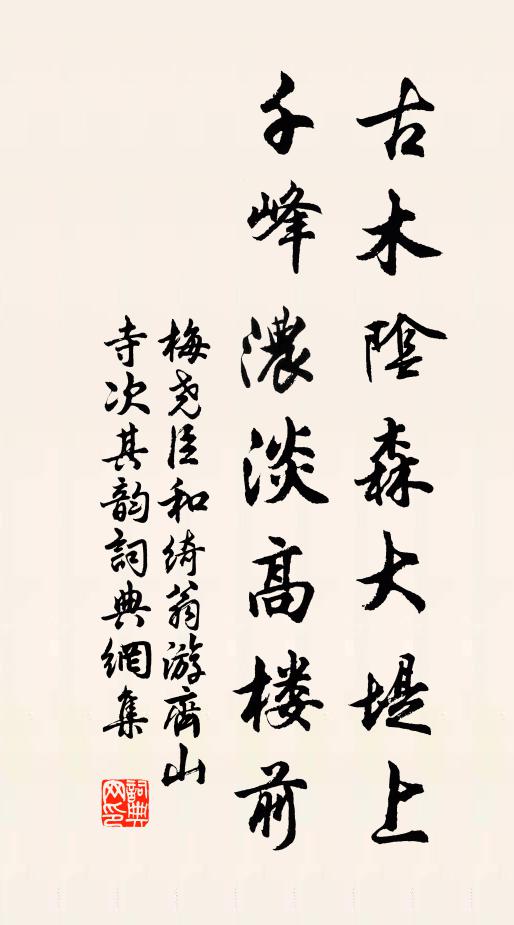 古木陰森大堤上
千峰濃淡高楼前
梅尧臣和绮翁游齊山
寺次其韵詞典網集
詞典网印